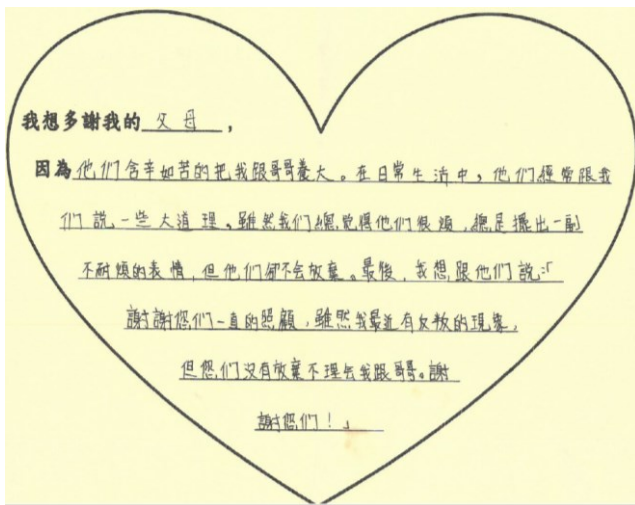 我想多謝我的 父母 ，
因為他們含辛如苦的把我跟哥哥養大。在日常生活中，他們經常跟我
們說一些大道理。雖然我們總覺得他們很煩，總是擺出一副
不耐煩的表情，但他們卻不会放棄。最後，我想跟他們說:「
謝謝您們一直的照顧，雖然我最近有反叛的現象，
但您們沒有放棄不理会我跟哥哥。謝
謝您們！」